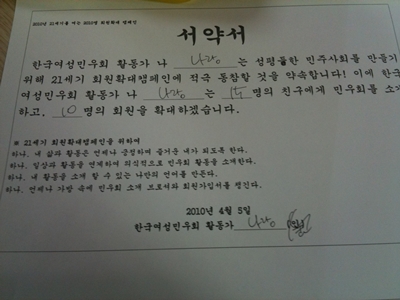 2010년 21세기를 여는 2010명 회원확대 캠페인
서약서
한국여성민우회 활동가 나 나랑 는 성평등한 민주사회를 만들기
위해 21세기 회원확대캠페인에 적극 동참할 것을 약속합니다! 이에 한국
여성민우회 활동가 나 나랑 는 명의 친구에게 민우회를 소개
하고, 10 명의 회원을 확대하겠습니다.
※ 21세기 회원확대캠페인을 위하여
하나, 내 삶과 활동은 언제나 긍정하며 즐거운 내가 되도록 한다.
하나, 일상과 활동을 연계하여 의식적으로 민우회 활동을 소개한다.
하나, 내 활동을 소개 할 수 있는 나만의 언어를 만든다.
하나, 언제나 가방 속에 민우회 소개 브로셔와 회원가입서를 챙긴다.
2010년 4월 5일
한국여성민우회 활동가 나랑 (인)